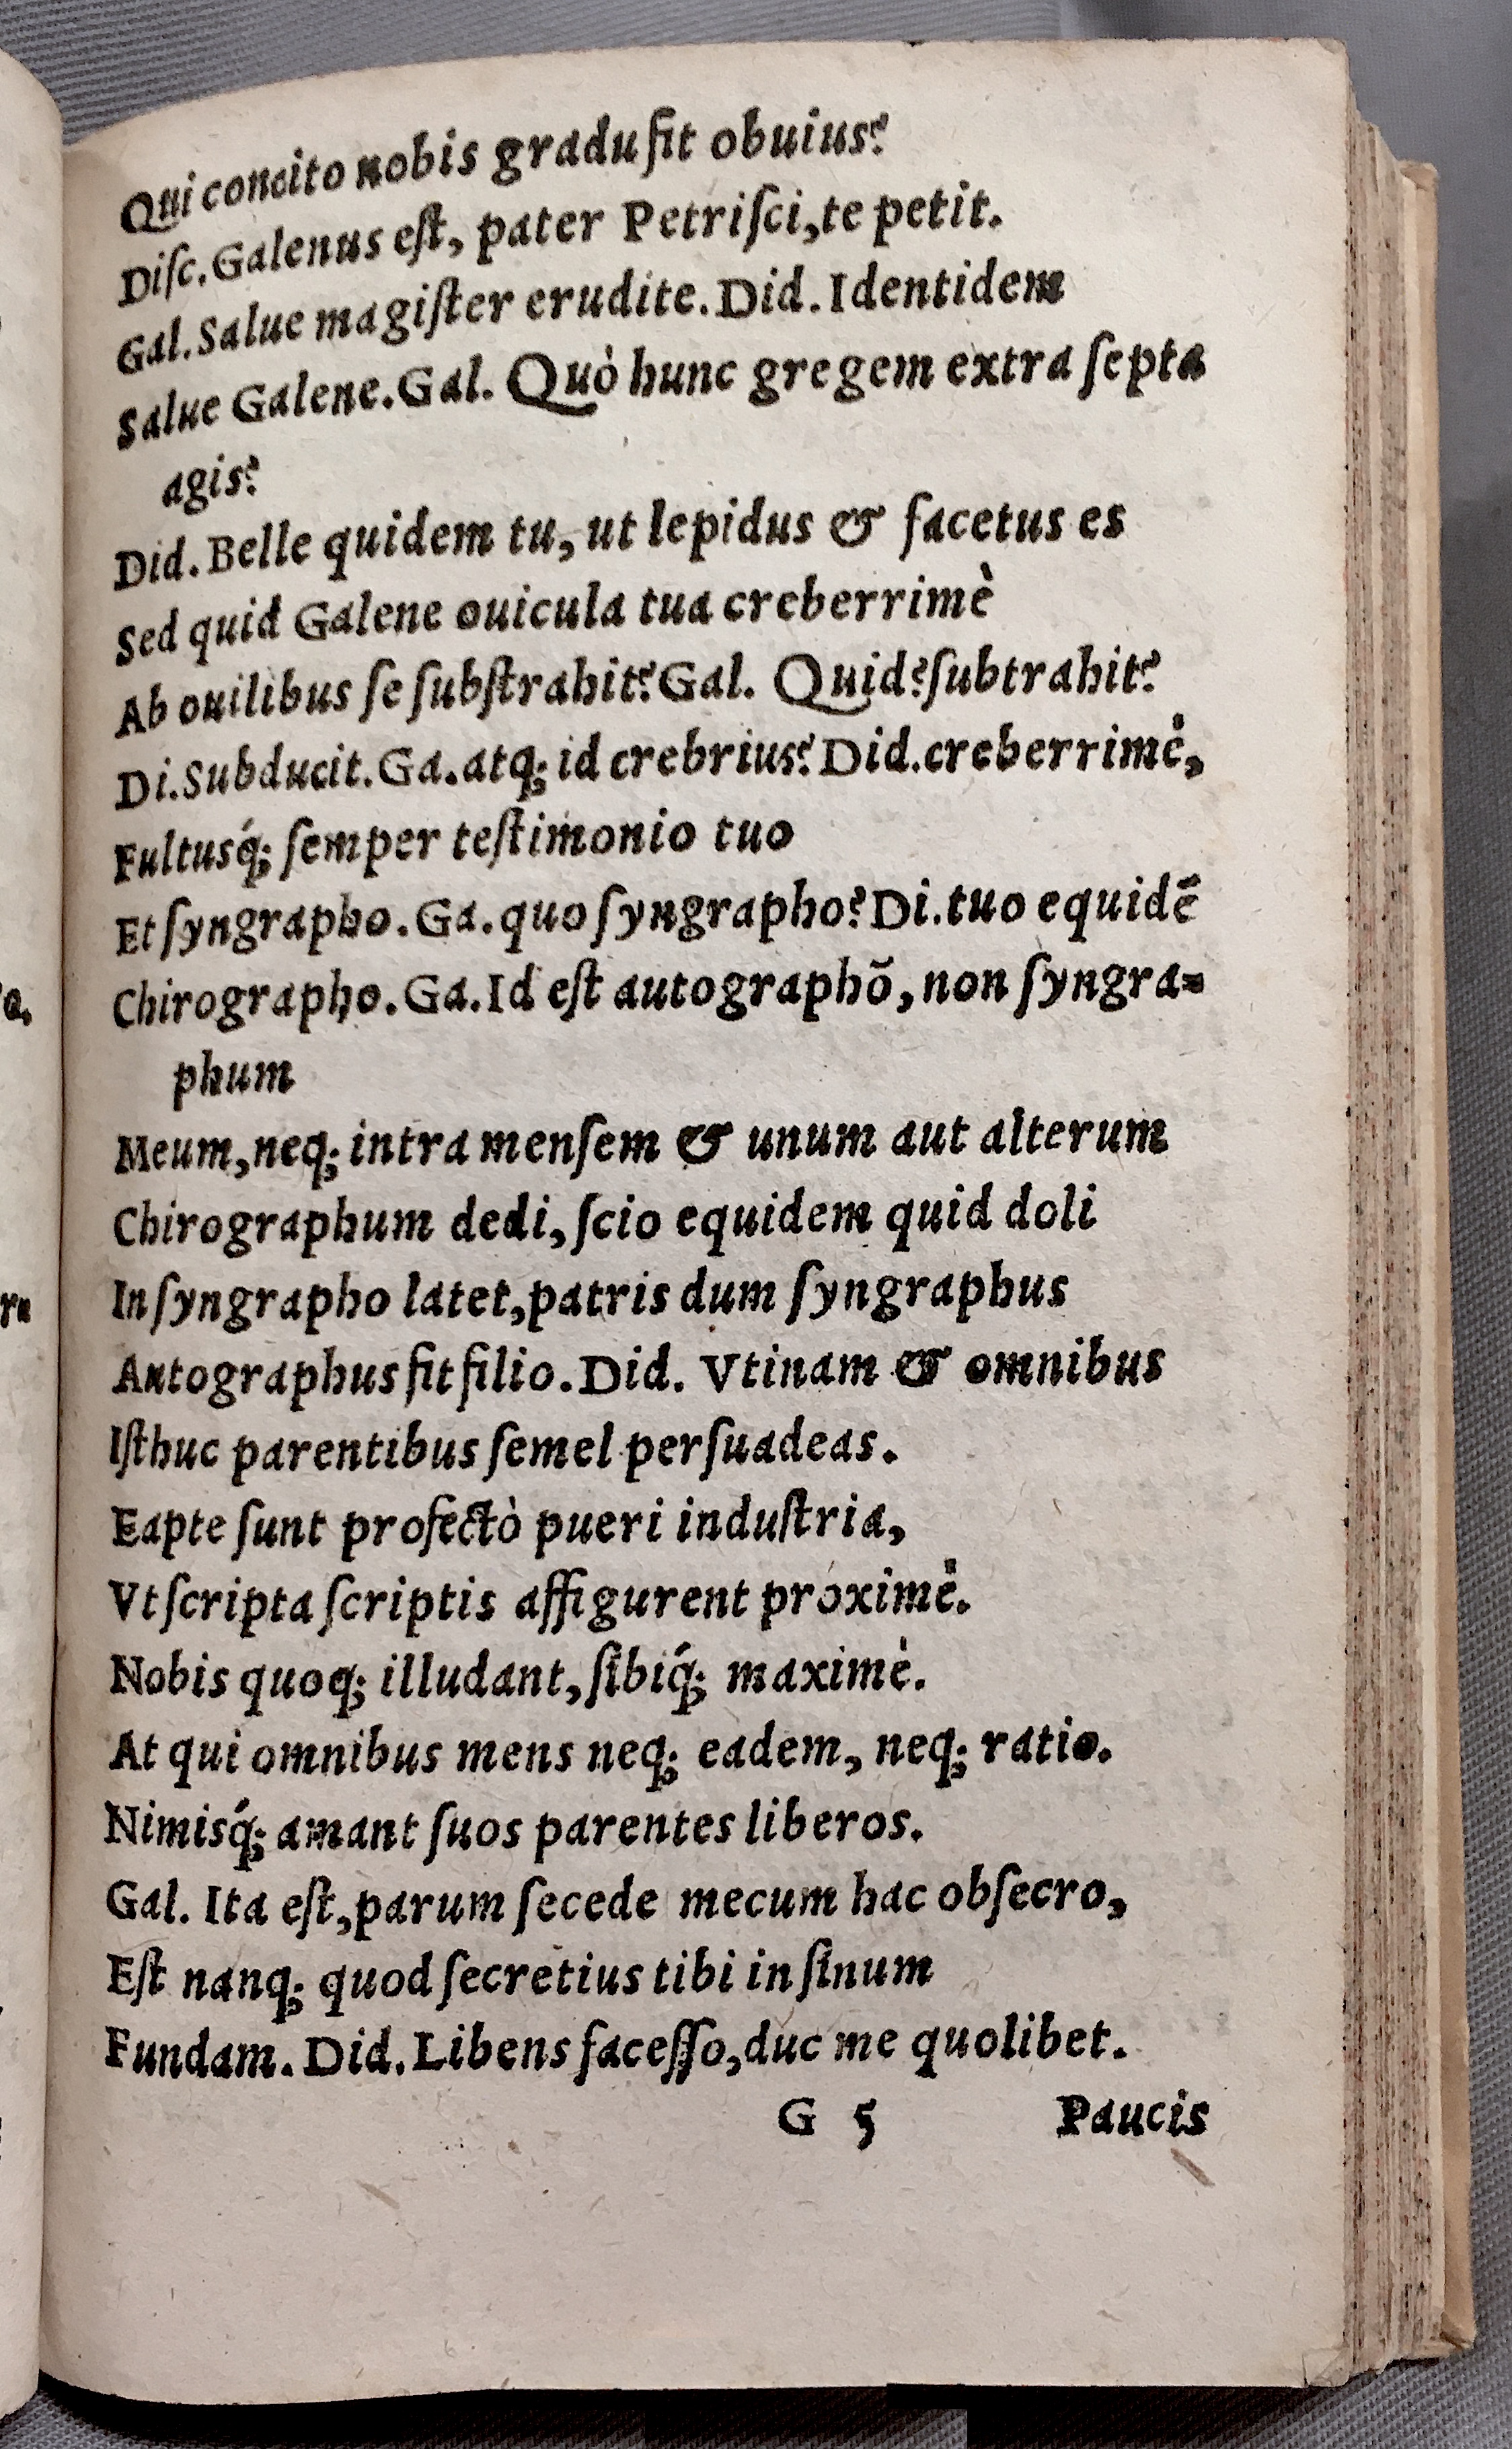 Qui concito nobis gradu ſit obuius?
Diſc. Galenus eſt, pater Petriſci, te petit.
Gal. Salue magiſter erudite. Did. Identidem
Salue Galene. Gal. Quò hunc gregem extra ſepta
agis?
Did. Belle quidem tu, ut lepidus & facetus es
Sed quid Galene ouicula tua creberrimè
Ab ouilibus ſe ſubſtrahit? Gal. Quid? ſubtrahit?
Di. Subducit. Ga. atq; id crebrius? Did. creberrimè,
Fultusq́; ſemper teſtimonio tuo
Et ſyngrapho. Ga. quo ſyngrapho? Di. tuo equidē
Chirographo. Ga. Id eſt autographō, non ſyngra=
phum
Meum, neq; intra menſem & unum aut alterum
Chirographum dedi, ſcio equidem quid doli
In ſyngrapho latet, patris dum ſyngraphus
Autographus fit filio. Did. Vtinam & omnibus
Iſthuc parentibus ſemel perſuadeas.
Eapte ſunt profectò pueri induſtria,
Vt ſcripta ſcriptis affigurent proximè.
Nobis quoq; illudant, ſibiq́; maximè.
At qui omnibus mens neq; eadem, neq; ratio.
Nimisq́; amant ſuos parentes liberos.
Gal. Ita eſt, parum ſecede mecum hac obſecro,
Eſt nanq; quod ſecretius tibi in ſinum
Fundam. Did. Libens faceſſo, duc me quolibet.
G 5 Paucis